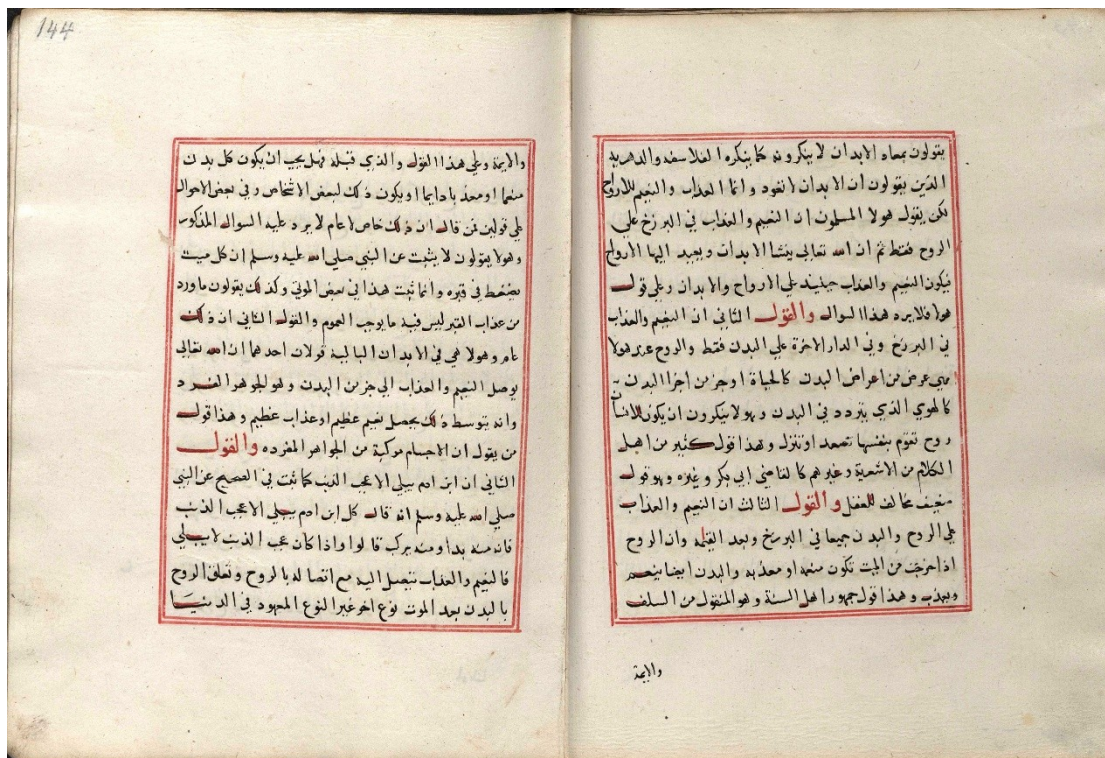 يقولون بمعاد الابدان لا ينكرونه كما ينكره الفلاسفه والدهريه
الذين يقولون ان الابدان لا تعود وانما العذاب والنعيم للارواح
لكن يقول هولا المسلمون ان النعيم والعذاب في البرزخ علي
الروح فقط ثم ان الله تعالي ينشا الابدان ويعيد اليها الارواح
فيكون النعيم والعذاب حينيذ علي الارواح والابدان وعلي قول
هولا فلا يرد هذا السوال والقول الثاني ان النعيم والعذاب
في البرزخ وفي الدار الاخرة علي البدن فقط والروح عند هولا
هي عرض من اعراض البدن كالحياة او جز من اجزا البدن
كالهوي الذي يتردد في البدن وهولا ينكرون ان يكون للانسان
روح تقوم بنفسها تصعد او تنزل وهذا قول كثير من اهل
الكلام من الاشعرية وغيرهم كالقاضي ابي بكر وغيره وهو قول
ضعيف مخالف للعقل والقول الثالث ان النعيم والعذاب
علي الروح والبدن جميعا في البرزخ وبعد القيمه وان الروح
اذا خرجت من الميت تكون منعمه او معذبه والبدن ايضا ينعم
ويعذب وهذا قول جمهور اهل السنة وهو المنقول من السلف
والايمة
144
والايمة وعلي هذا القول والذي قبله فهل يجب ان يكون كل بدن
منعما او معذبا دايما او يكون ذلك لبعض الاشخاص وفي بعض الاحوال
علي قولين فمن قال ان ذلك خاص لا عام لا يرد عليه السوال المذكور
وهولا يقولون لا يثبت عن النبي صلي الله عليه وسلم ان كل ميت
يضغط في قبره وانما ثبت هذا في بعض الموتي وكذلك يقولون ما ورد
من عذاب القبر ليس فيه ما يوجب العموم والقول الثاني ان ذلك
عام وهولا هي في الابدان البالية قولان احدهما ان الله تعالي
يوصل النعيم والعذاب الي جز من البدن وهو الجوهر الفرد
وانه بتوسط ذلك يحصل نعيم عظيم او عذاب عظيم وهذا قول
من يقول ان الاجسام مركبة من الجواهر المفرده والقول
الثاني ان ابن ادم يبلي الا عجب الذنب كما ثبت في الصحيح عن النبي
صلي الله عليه وسلم انه قال كل ابن ادم يبلي الا عجب الذنب
فانه منه بدا ومنه يركب قالوا واذا كان عجب الذنب لا يبلي
فالنعيم والعذاب يتصل اليه مع اتصاله بالروح وتعلق الروح
بالبدن بعد الموت نوع اخر غير النوع المعهود في الدنيا